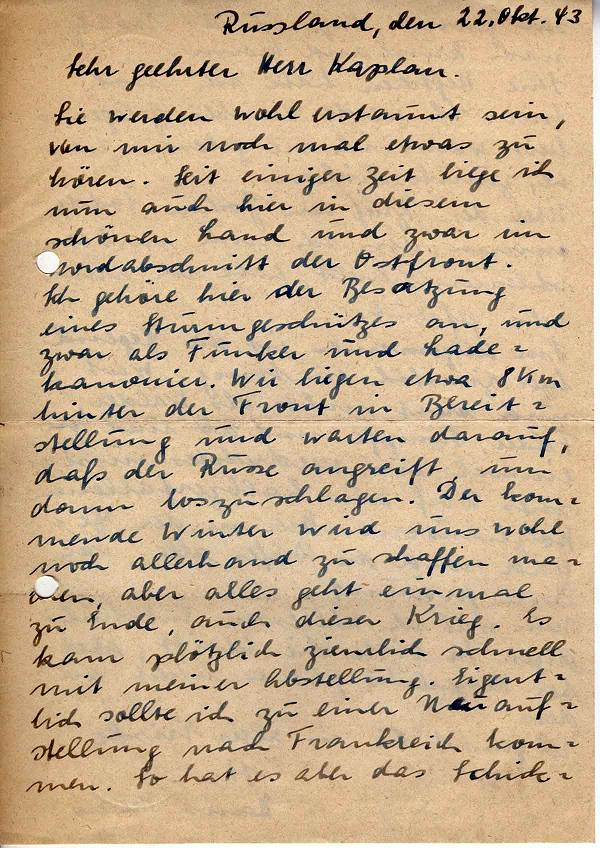 Russland, den 22. Okt. 43
Sehr geehrter Herr Kaplan.
Sie werden wohl erstaunt sein,
von mir noch mal etwas zu
hören. Seit einiger Zeit liege ich
nun auch hier in diesem
schönen Land und zwar im
Nordabschnitt der Ostfront.
Ich gehöre hier der Besatzung
eines Sturmgeschützes an, und
zwar als Funker und Lade=
kanonier. Wir liegen etwa 8 Km
hinter der Front in Bereit=
stellung und warten darauf,
daß der Russe angreift, um
dann loszuschlagen. Der kom=
mende Winter wird uns wohl
noch allerhand zu schaffen ma=
chen, aber alles geht einmal
zu Ende, auch dieser Krieg. Es
kam plötzlich ziemlich schnell
mit meiner Abstellung. Eigent=
lich sollte ich zu einer Neuauf=
stellung nach Frankreich kom=
men. So hat es aber das Schick=